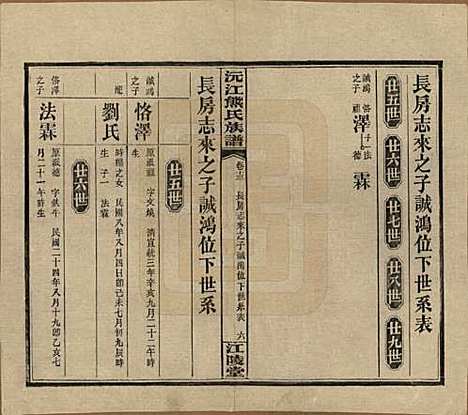 長房志來之子誠鴻位下世系表
廿五世
廿六世
廿七世
廿八世
廿九世
誠鴻之子
澤
子一法
霖
沅江熊氏族譜
長房志來之子誠鴻位下世系表
六
江陵堂
長房志來之子誠鴻位下世系
廿五世
誠鴻之子
恪澤
原派祖
字文煥
清宣統三年辛亥九月二十二午時生
劉氏
時暢之女
民國八年八月四日卽己未七月初九辰時生
子一
法霖
廿六世
恪澤之子
法霖
原派德
字鉄牛
民國二十四年八月十九卽乙亥七月二十一午時生